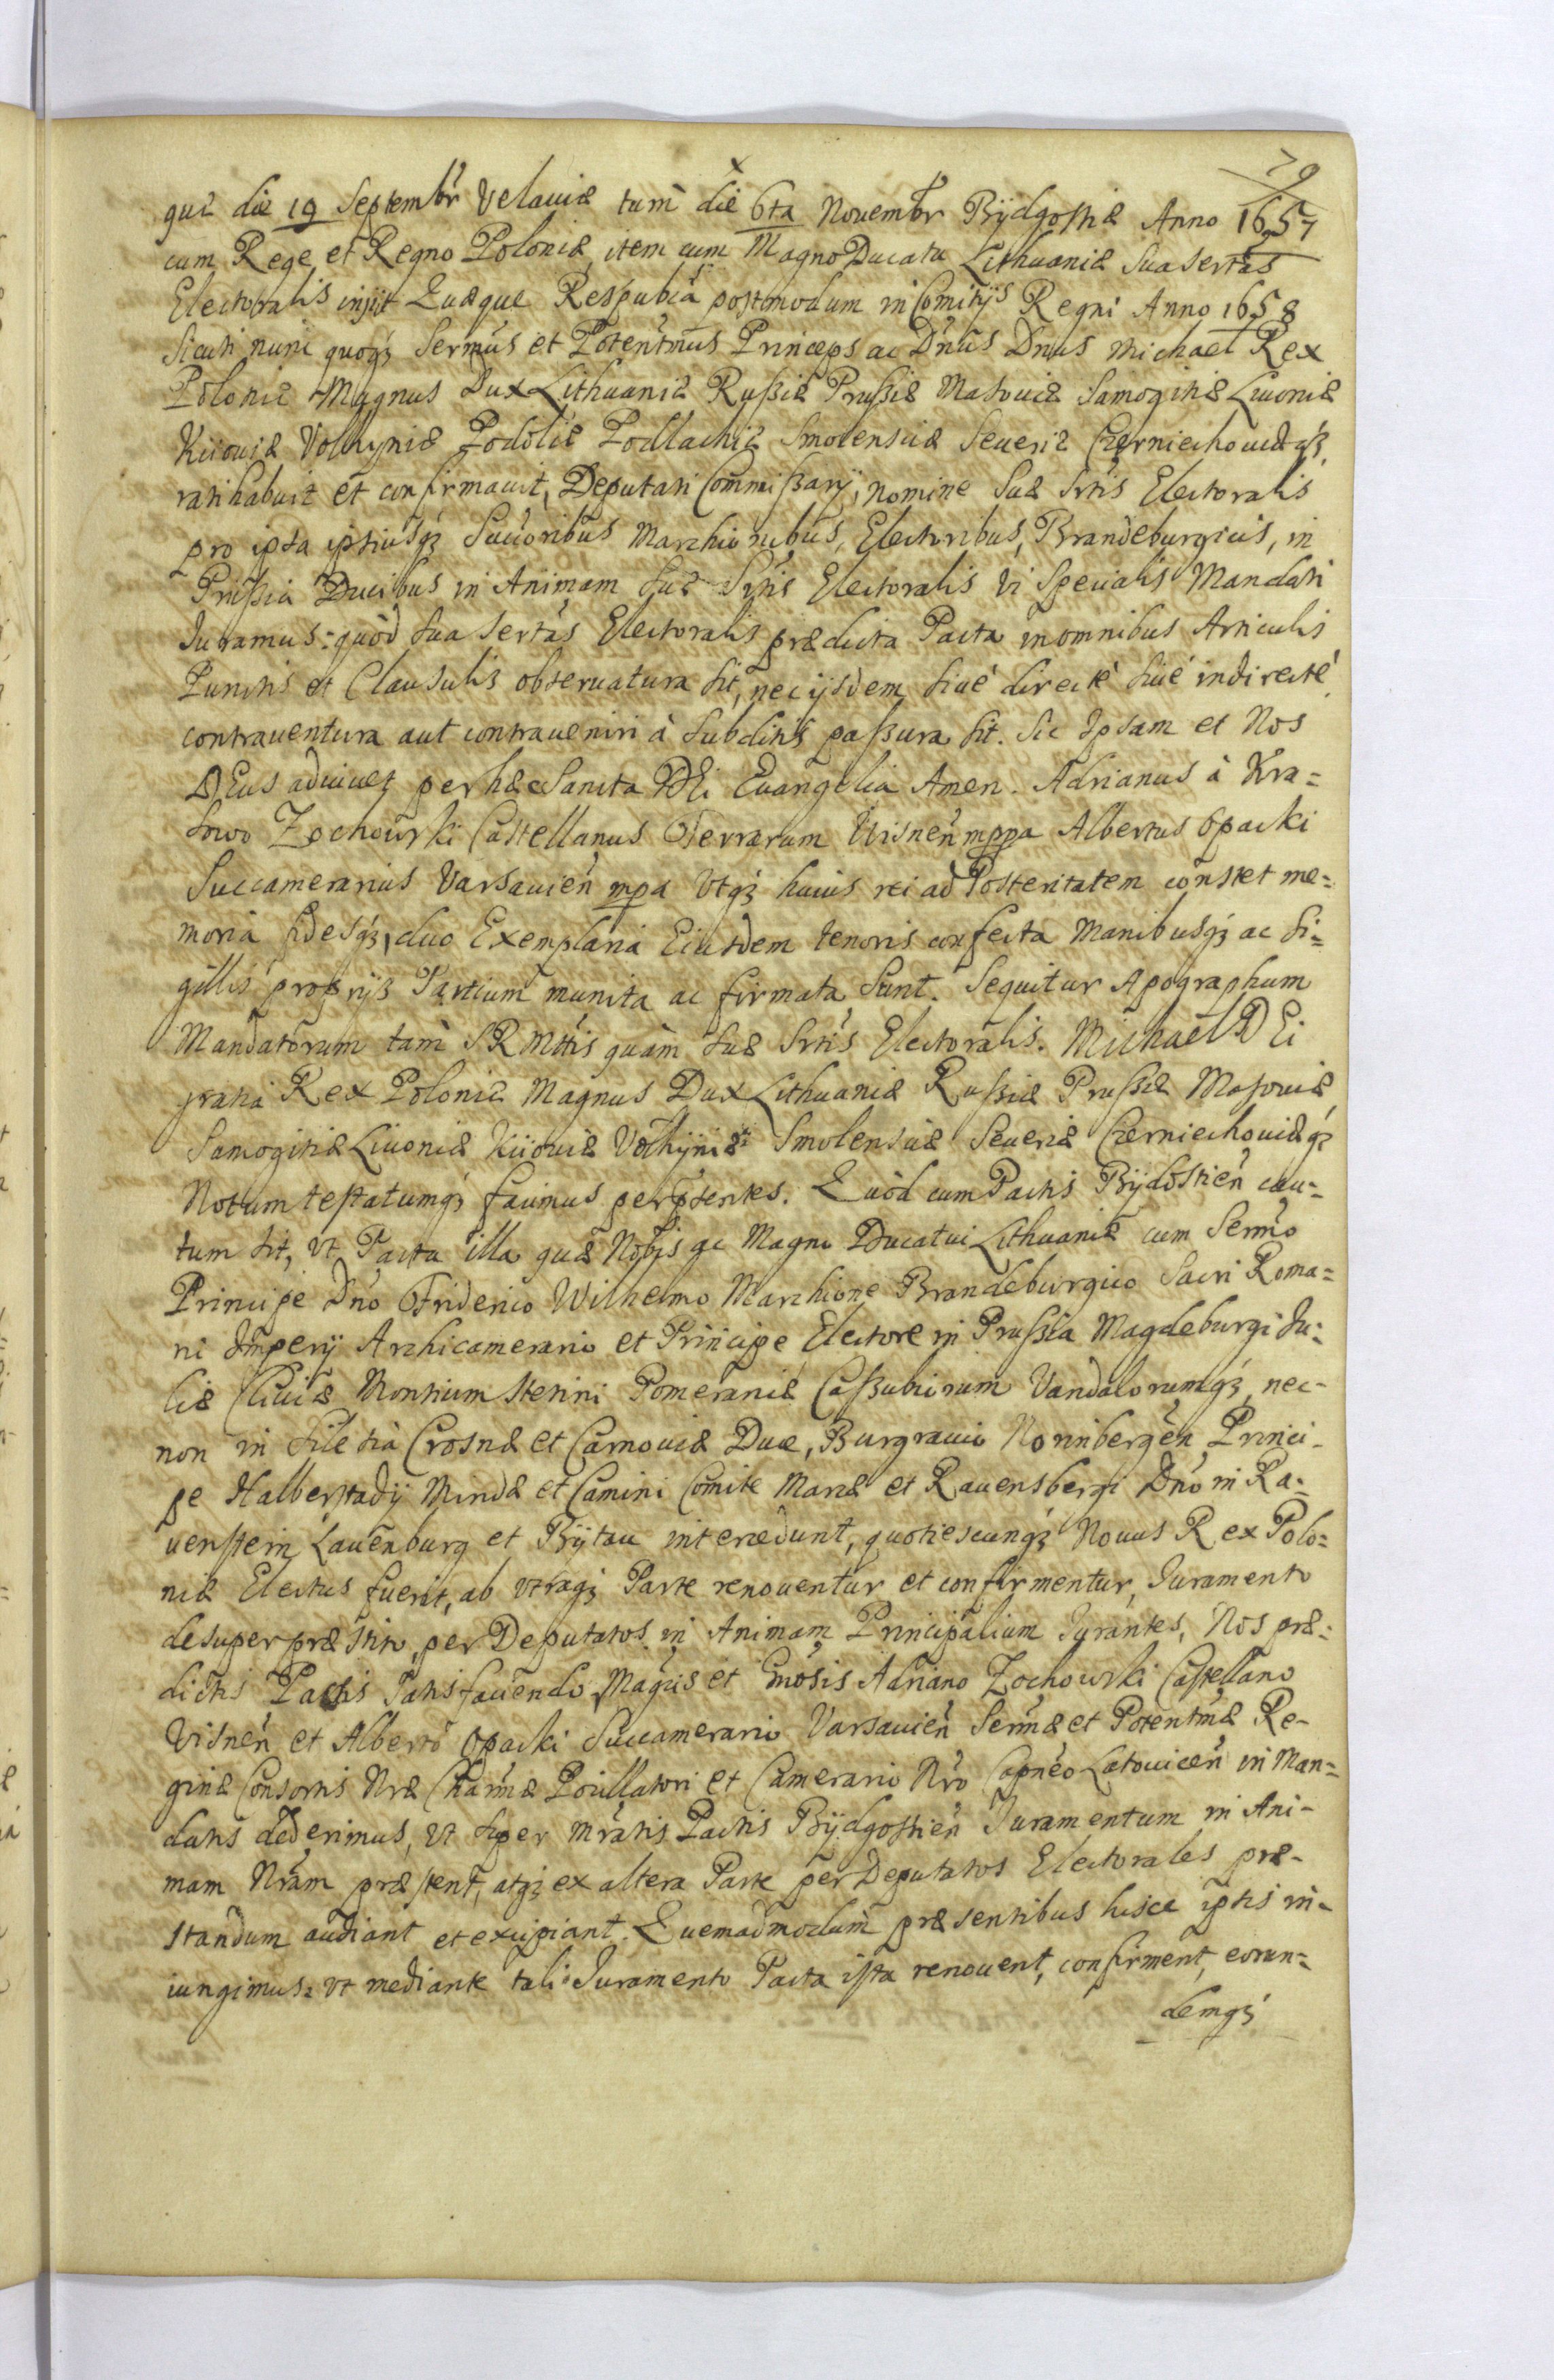 79
quæ die 19 Septembr̃ Velauiæ tum die 6ta Nouembr̃ Bÿdgostiæ Anno 1657
cum Rege et Regno Poloniæ, item cum Magno Ducatu Lithuaniæ Sua Sertas
Electoralis iniit Quæque Respubca postmodum in Comitijs Regni Anno 1658
Sicuti nunc quoqȝ Sermus et Potentmus Princeps ac Dnus Dnus Michael Rex
Poloniæ Magnus Dux Lithuaniæ Rußiæ Prußiæ Masouiæ Samogitiæ Liuoniæ
Kiiouiæ Volhyniæ Podoliæ Podlachiæ Smolensciæ Seueriæ Czerniechouiæqȝ
ratihabuit et confirmauit, Deputati Commißarij, nomine Suæ Srtis Electoralis
pro ipsa ipsiusqȝ Succoribus Marchionibus, Electoribus, Brandeburgicis, in
Prußia Ducibus in Animam Suæ Srtis Electoralis vi Specialis Mandati
Iuramus: quòd Sua Sertas Electoralis prædicta Pacta in omnibus Articulis
Punctis et Clausulis obseruatura sit, nec ijsdem siuè directè siuè indirectè
contrauentura aut contraueniri à Subditis paßura sit. Sic Ipsam et Nos
DEus adiuuet per hæc Sancta DEi Euangelia Amen. Adrianus à Kra=
sowo Zochowski Castellanus Terrarum Visnen mppa Albertus Opacki
Succamerarius Varsauien mpa Vtqȝ huius rei ad Posteritatem constet me=
moria fidesqȝ, duo Exemplaria Eiusdem tenoris confecta Manibusqȝ ac Si=
gillis proprijs Partium munita ac firmata Sunt. Sequitur Apographum
Mandatorum tàm SRMttis quàm Suæ Srtis Electoralis. Michael DEi
gratia Rex Poloniæ Magnus Dux Lithuaniæ Rußiæ Prußiæ Masouiæ
Samogitiæ Liuoniæ Kiiouiæ Volhijniæ Smolensciæ Seueriæ Czerniechouiæqȝ
Notum testatumqȝ facimus per psentes. Quòd cum Pactis Bijdgostien cau=
tum sit, vt Pacta illa quæ Nobis ac Magno Ducatui Lithuaniæ cum Sermo
Principe Dno Friderico Wilhelmo Marchione Brandeburgico Sacri Roma=
ni Imperij Archicamerario et Principe Electore in Prußia Magdeburgi Iu=
liæ Cliuiæ Montium Stetini Pomeraniæ Caßubiorum Vandalorumqȝ nec-
non in Silesia Crosnæ et Carnouiæ Duce, Burgrauio Norinbergen Princi-
pe Halberstadij Mindæ et Camini Comite Marcæ et Rauensbergi Dno in Ra=
uenstein Lauenburg et Bijtau intercedunt, quotiescunqȝ Nouus Rex Polo=
niæ Electus fuerit, ab vtraqȝ Parte renouentur et confirmentur, Iuramento
desuper præstito, per Deputatos in Animam Principalium Iurantes, Nos præ=
dictis Pactis Satisfaciendo Magcis et Gnosis Adriano Zochowski Castellano
Visnen et Alberto Opacki Succamerario Varsauien Sermæ et Potentmæ Re-
ginæ Consortis Nræ Charmæ Pocillatori et Camerario Nro Capneo Latouicen in Man=
datis dederimus, vt super mratis Pactis Bijdgostien Iuramentum in Ani-
mam Nram præstent, atqȝ ex altera Parte per Deputatos Electorales præ-
standum audiant et excipiant. Quemadmodum præsentibus hisce ipsis in-
iungimus: vt mediante tali Iuramento Pacta ista renouent, confirment, eorun=
demqȝ